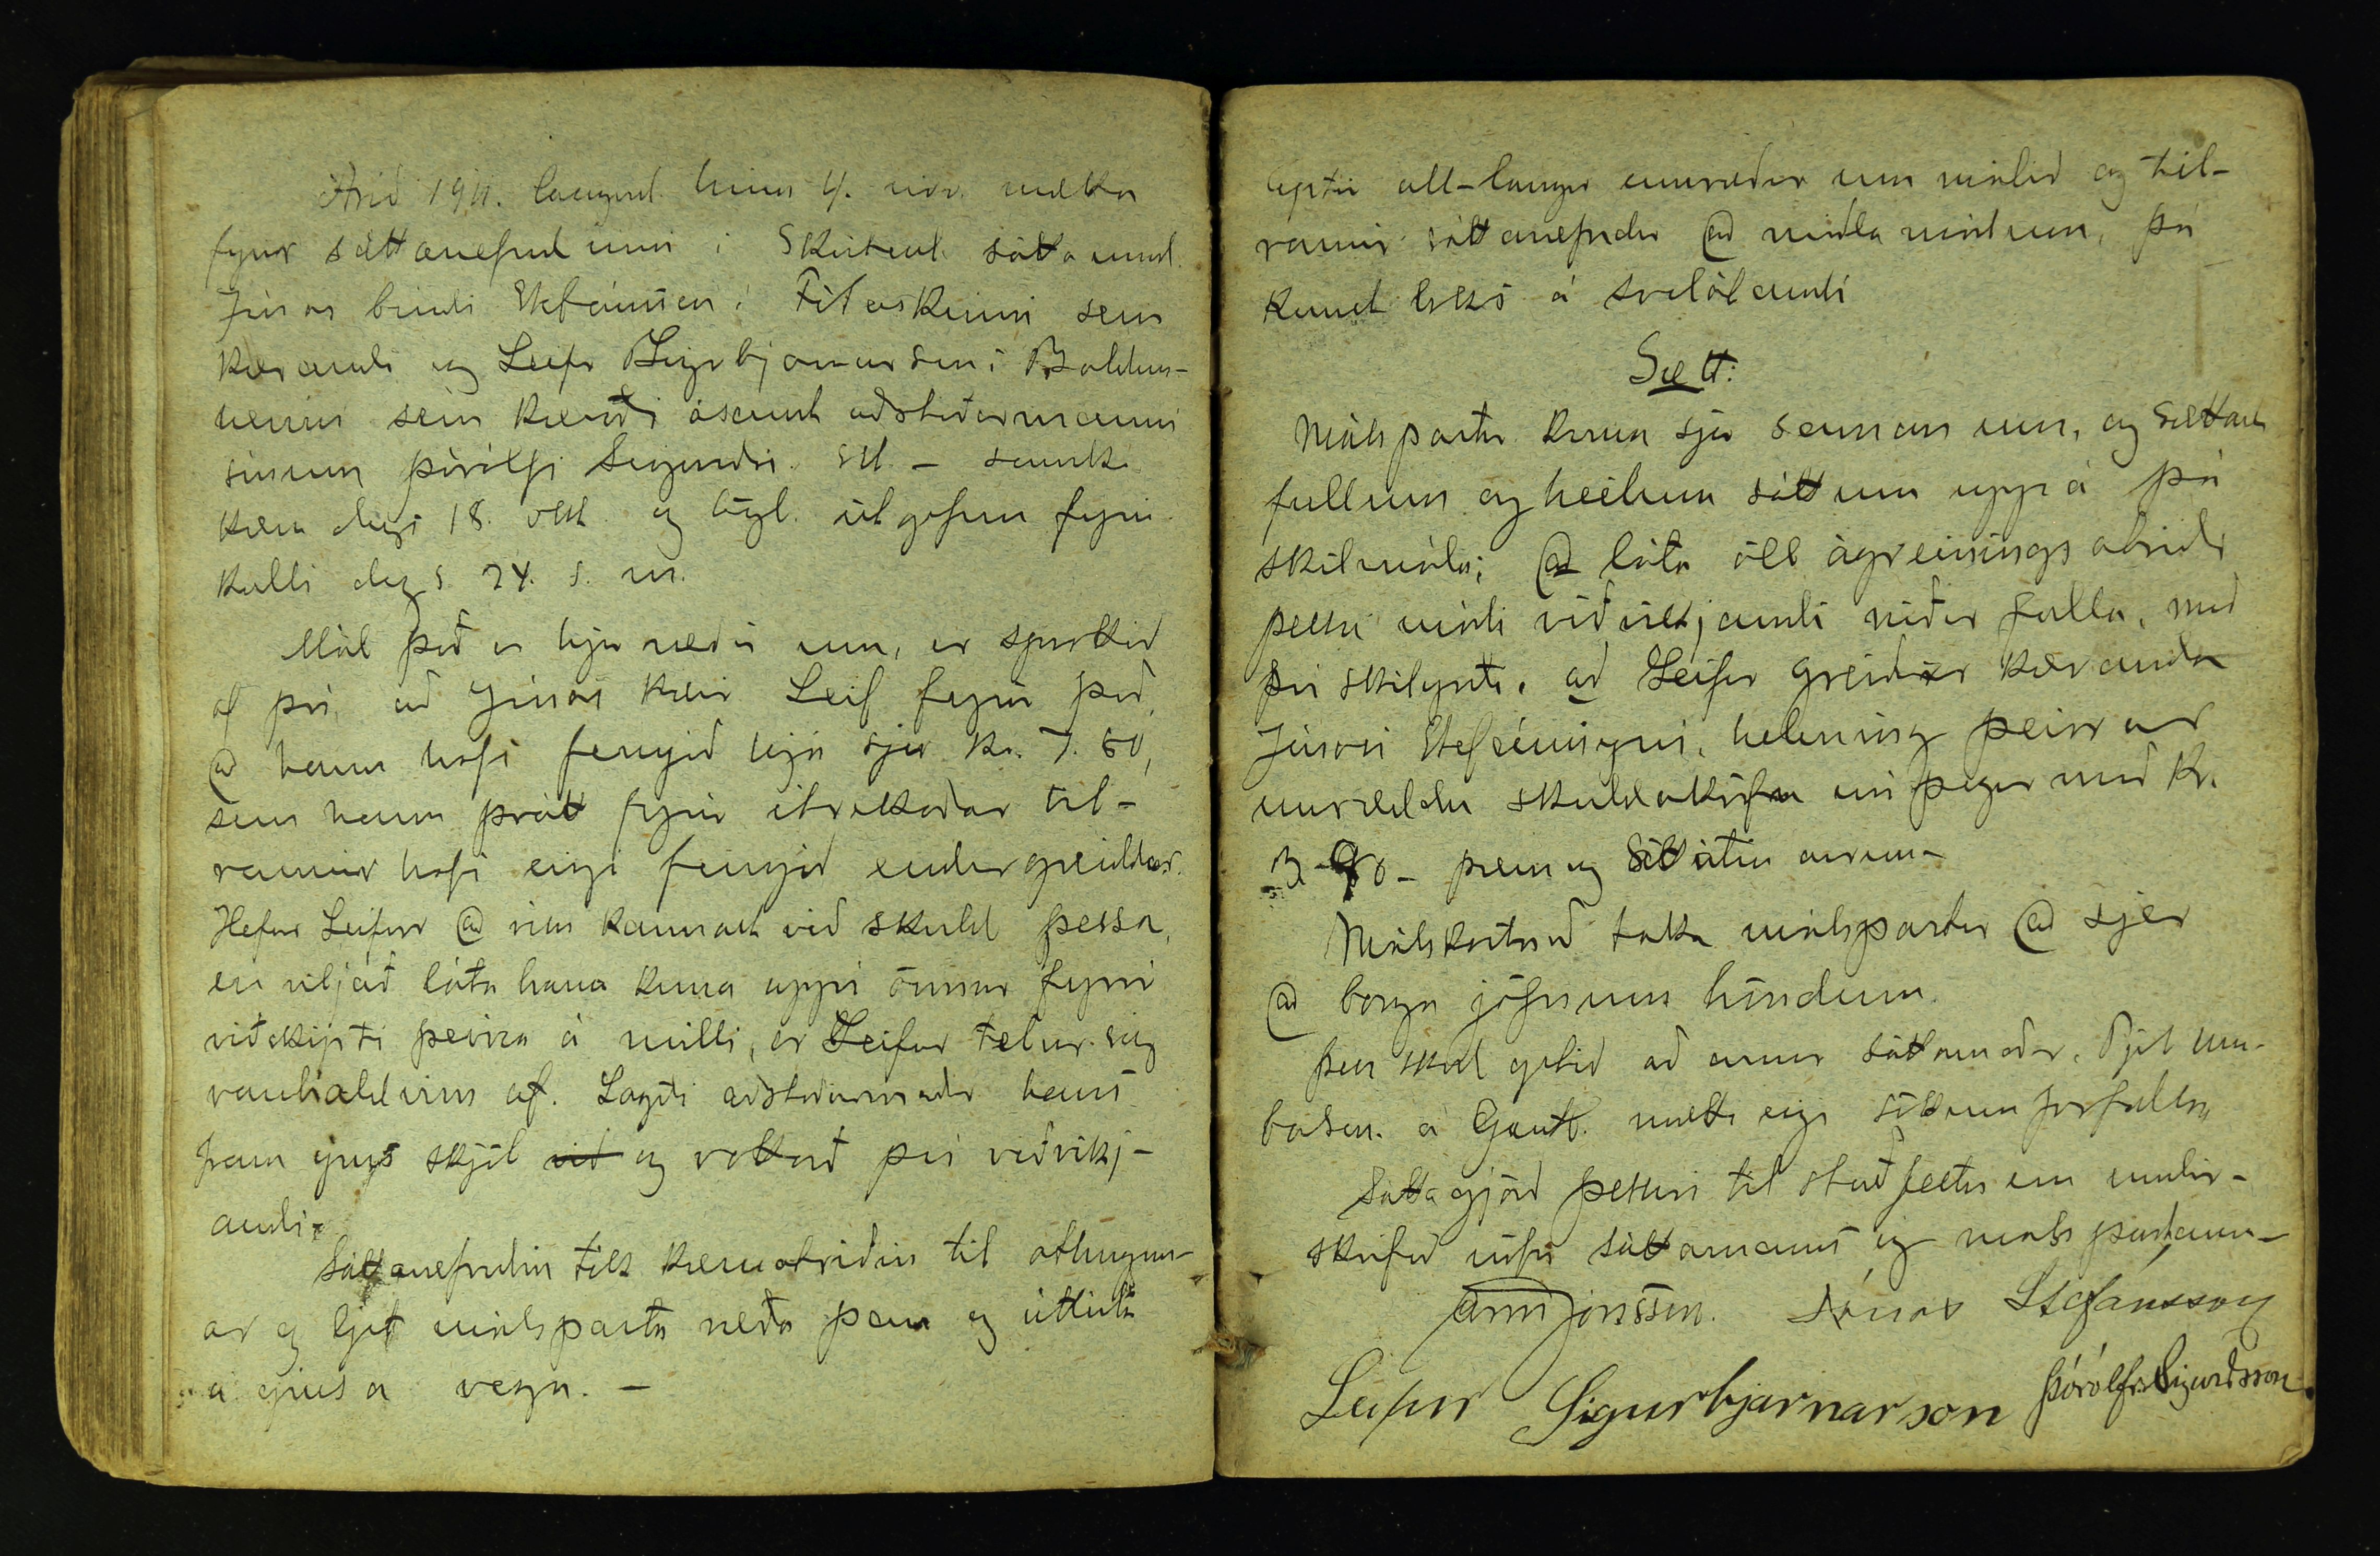 Árið 1911. laugard. hinn 4. nóv. mættu
fyrir sáttanefndinni í Skútust. sáttaumd.
Jónas bóndi Stefánsson í sem
kærandi og Leifr Sigrbjarnarson í
sem kærði ásamt aðstoðarmanni
sínum Þórólfi Sigurðs. samkv.
kæru dags 18. okt. og lögl. útgefnu fyrir
kalli dags 24. s. m.
Mál það er hjer ræðir um, er sprottið
af því, að Jónas kærir Leif fyrir það,
@ hann hafi fengið hjá sjer kr. 7.80,
sem hann þrátt fyrir ítrekaðar til-
raunir hafi eigi fengið endurgreiddar.
Hefur Leifur @ vísu kannast við skuld þessa,
en viljað láta hana koma uppí önnur fyrri
viðskipti þeirra á milli, er Leifur telur sig
vanhaldinn af. Lagði aðstoðarmaðr hans
fram ýmis skjöl við og vottorð því viðvíkj-
andi.
Sáttanefndin tók kæruatriðin til athugun-
ar og ljet málsparta ræða þau og útlista
á ýmsa vegu. –
Eptir all-langar umræður um málið og til-
raunir sáttanefndar @ miðla málum, þá
komst loks á svolátandi
Sætt:
Málspartar koma sjer saman um, og sættast
fullum og heilum sáttum uppá þá
skilmála; @ láta öll ágreinings atriði
þessu máli viðvíkjandi niður falla, með
því skilyrði, að Leifur greiðir kæranda
Jónasi Stefánssyni, helming þeirrar
umræddu skuldakröfu nú þegar með kr.
3-90- þrem og níutíu aurum-
Málskostnað taka málspartar @ sjer
@ borga jöfnum höndum.
Þess skal getið að annar sáttamaðr.
á Gautl. mætti eigi sökum forfalla
Sáttagjörð þessari til staðfestu eru undir-
skrifuð nöfn sáttamanns og málspartanna-
Árni Jónsson. Jónas Stefánsson
Leifur Sigurbjarnarson Þórólfur Sigurðsson